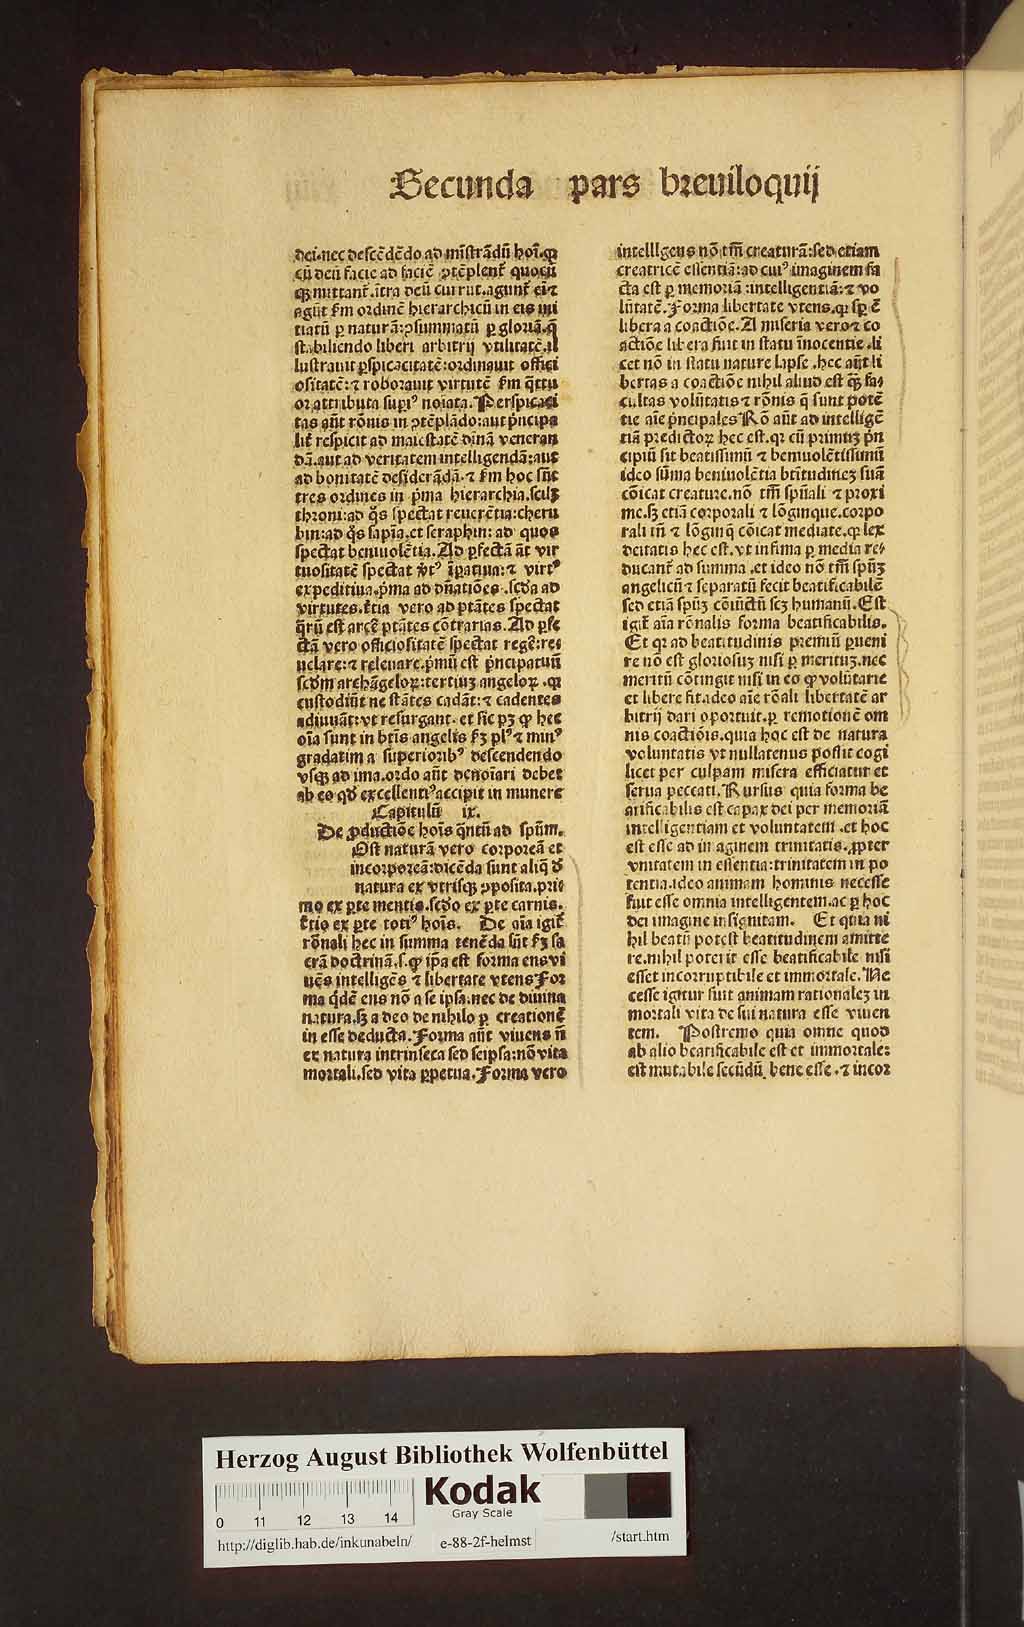 Secunda pars breuiloquij
dei.nec descēdēdo ad mīstrādū hoī.qꝛ
cū deū facie ad faciē ꝯtēplent᷑ quocū
qꝫ mittant᷑.ītra deū currūt.agunt᷑ eī ⁊
agūt ẜm ordinē hierarchicū in eis ini
tiatū ꝑ naturā:ꝯsummatū ꝑ gloriā.q̄
stabiliendo liberi arbitrij vtilitatē.il
lustrauit ꝑspicacitatē:ordinauit offici
ositatē:⁊ roborauit virtutē ẜm q̄ttu
or attributa supiꝰ noīata. Perspicaci
tas aūt rōnis in ꝯtēplādo:aut p̄ncipa
lit᷑ respicit ad maiestatē diuinā veneran
dā.aut ad veritatem intelligendā:aut
ad bonitatē desiderādā.⁊ ẜm hoc sūt
tres ordines in p̄ma hierarchia.scilꝫ
throni:ad q̊s spectat reuerētia:cheru
bin:ad q̊s sapīa.et seraphin: ad quos
spectat beniuolētia. Ad ꝑfectā āt vir
tuositatē spectat v̄tꝰ īꝑatiua:⁊ virtꝰ
expeditiua.p̄ma ad dn̄atiōes.scd̄a ad
virtutes.t̄tia vero ad ptātes spectat
q̄rū est arcē ptātes cōtrarias. Ad ꝑfe
ctā vero officiositatē spectat regē:re⸗
uelare:⁊ releuare.p̄mū est p̄ncipatuū
scd̄m archāgeloꝝ:tertiuꝫ angeloꝝ.qꝛ
custodiūt ne stātes cadāt:⁊ cadentes
adiuuāt:vt resurgant. et sic pꝫ ꝙ hec
oīa sunt in btīs angelis ẜꝫ plꝰ ⁊ minꝰ
gradatim a superioribꝰ descendendo
vsqꝫ ad ima.ordo aūt denoīari debet
ab eo qd̄ excellentiꝰ accipit in munere
Capitulū ix.
De ꝓductiōe hoīs q̄ntū ad spūm.
Ost naturā vero corporeā et
incorporeā:dicēda sunt aliq̄ d̄
natura ex vtrisqꝫ ꝯposita.pri⸗
mo ex ꝑte mentis.scd̄o ex ꝑte carnis.
t̄tio ex ꝑte totiꝰ hoīs. De aīa igit᷑
rōnali hec in summa tenēda sūt ẜꝫ sa
crā doctrinā.s.ꝙ ip̄a est forma ens vi
uēs intelligēs ⁊ libertate vtens For
ma q̄dē ens nō a se ipsa.nec de diuina
natura.sꝫ a deo de nihilo ꝑ creationē
in esse deducta. Forma aūt viuens n̄
ex natura intrinseca sed seipsa:nō vita
mortali.sed vita ꝑpetua. Forma vero
intelllgens nō tm̄ creaturā:sed etiam
creatricē essentiā:ad cuiꝰ imaginem fa
cta est ꝑ memoriā:intelligentiā:⁊ vo
lūtatē. Forma libertate vtens.qꝛ sp̄ ē
libera a coactiōe. A miseria vero ⁊ co
actiōe libera fuit in statu īnocentie.li
cet nō in statu nature lapse.hec aūt li
bertas a coactiōe nihil aliud est q̄ꝫ fa⸗
cultas volūtatis ⁊ rōnis q̄ sunt potē
tie aīe p̄ncipales Rō aūt ad intelligē
tiā predictoꝝ hec est.qꝛ cū primuꝫ p̄n
cipiū sit beatissimū ⁊ beniuolētissimū
ideo sūma beniuolētia btītudineꝫ suā
cōicat creature.nō tm̄ spūali ⁊ proxi
me.sꝫ etiā corporali ⁊ lōginque.corpo
rali tn̄ ⁊ lōginq̄ cōicat mediate.qꝛ lex
deitatis hec est.vt infima ꝑ media re⸗
ducant᷑ ad summa.et ideo nō tm̄ spūꝫ
angelicū ⁊ separatū fecit beatificabilē
sed etiā spūꝫ cōiūctū scꝫ humanū. Est
igit᷑ aīa rōnalis forma beatificabilis.
Et qꝛ ad beatitudinis premiū ꝑueni
re nō est gloriosuꝫ nisi ꝑ merituꝫ.nec
meritū cōtingit nisi in eo ꝙ volūtarie
et libere fit.ideo aīe rōnali libertatē ar
bitrij dari oportuit.ꝑ remotionē om
nis coactiōis.quia hoc est de natura
voluntatis vt nullatenus possit cogi
licet per culpam misera efficiatur et
serua peccati. Rursus quia forma be
atificabilis est capax dei per memoriā
intelligentiam et voluntatem.et hoc
est esse ad imaginem trinitatis.ꝓpter
vnitatem in essentia:trinitatem in po
tentia.ideo animam hominis necesse
fuit esse omnia intelligentem.ac ꝑ hoc
dei imagine insignitam. Et quia ni
hil beatū potest beatitudinem amitte
re.nihil poterit esse beatificabile nisi
esset incorruptibile et immortale. Ne
cesse igitur fuit animam rationaleꝫ in
mortali vita de sui natura esse viuen
tem. Postremo quia omne quod
ab alio beatificabile est et immortale:
est mutabile secūdū bene esse.⁊ incor
Herzog August Bibliothek Wolfenbüttel
0 11 12 13 14
Kodak
Gray Scale
http://diglib.hab.de/inkunabeln/ e-88-2f-helmst /start.htm